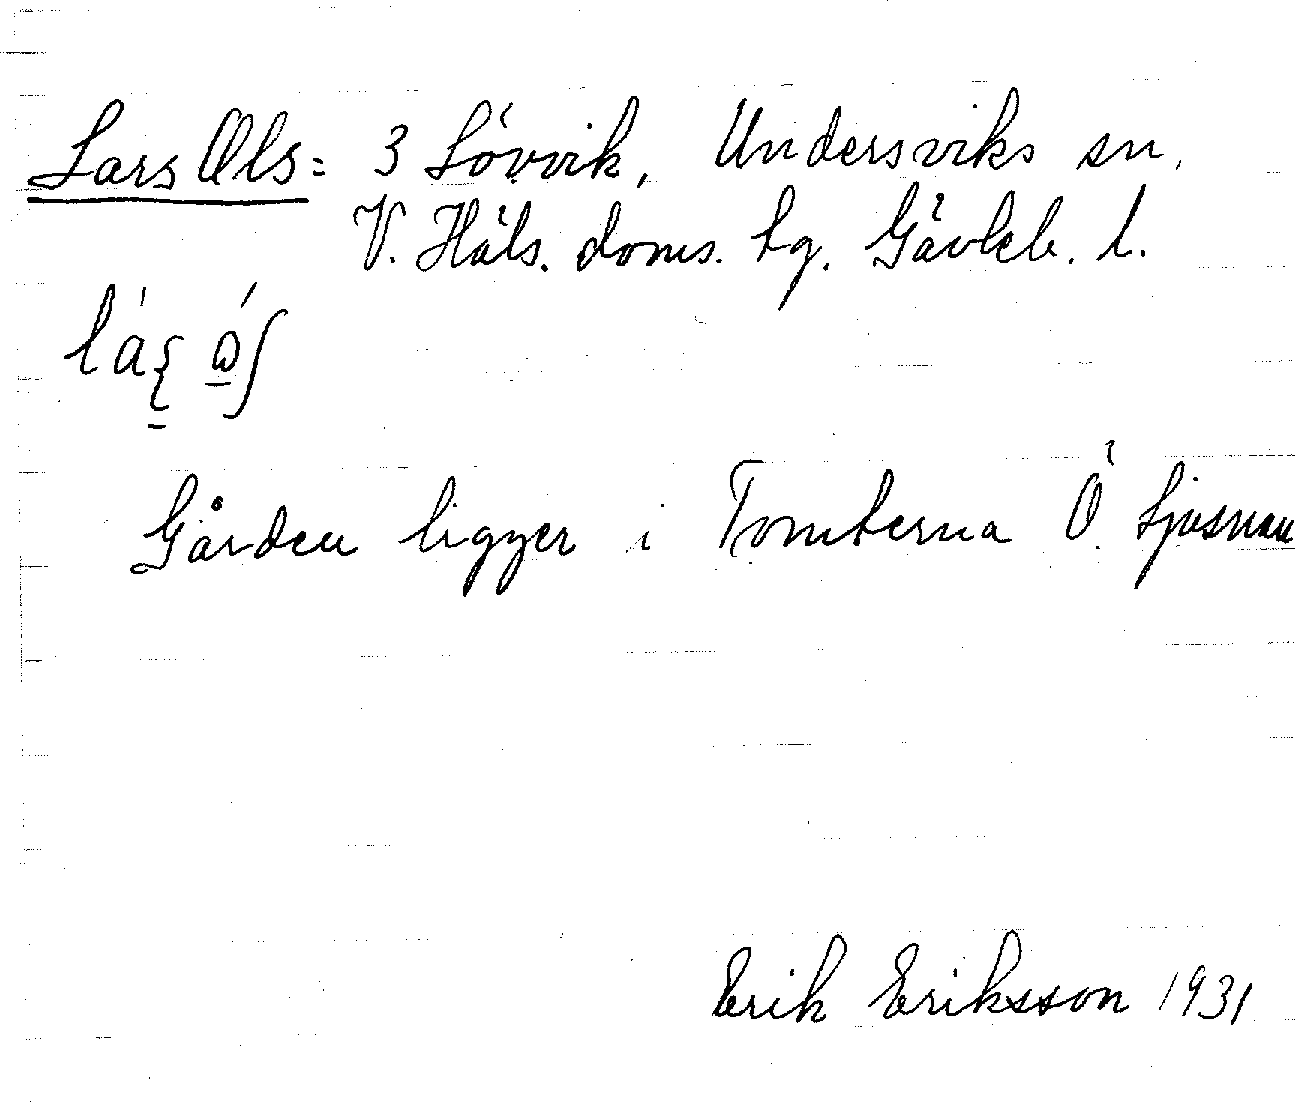 Lars Ols= 3 Lövvik, Undersviks sn.
V. Häls. doms. lg. Gävleb. l.
Gården ligger i Tomterna Ö. Ljusnan
Erik Eriksson 1931